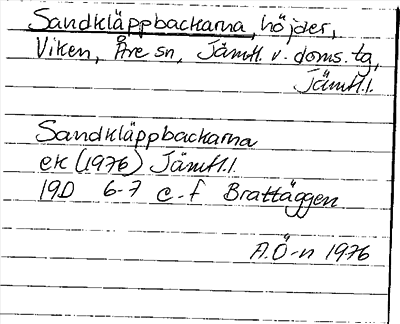 Sandkläppbackarna, höjder,
Viken, Åre sn, Jämtl. v. doms. tg,
Jämtl. l.
Sandkläppbackarna
ek (1976) Jämtl. l.
19D 6-7 e-f Brattäggen
A.Ö-n 1976